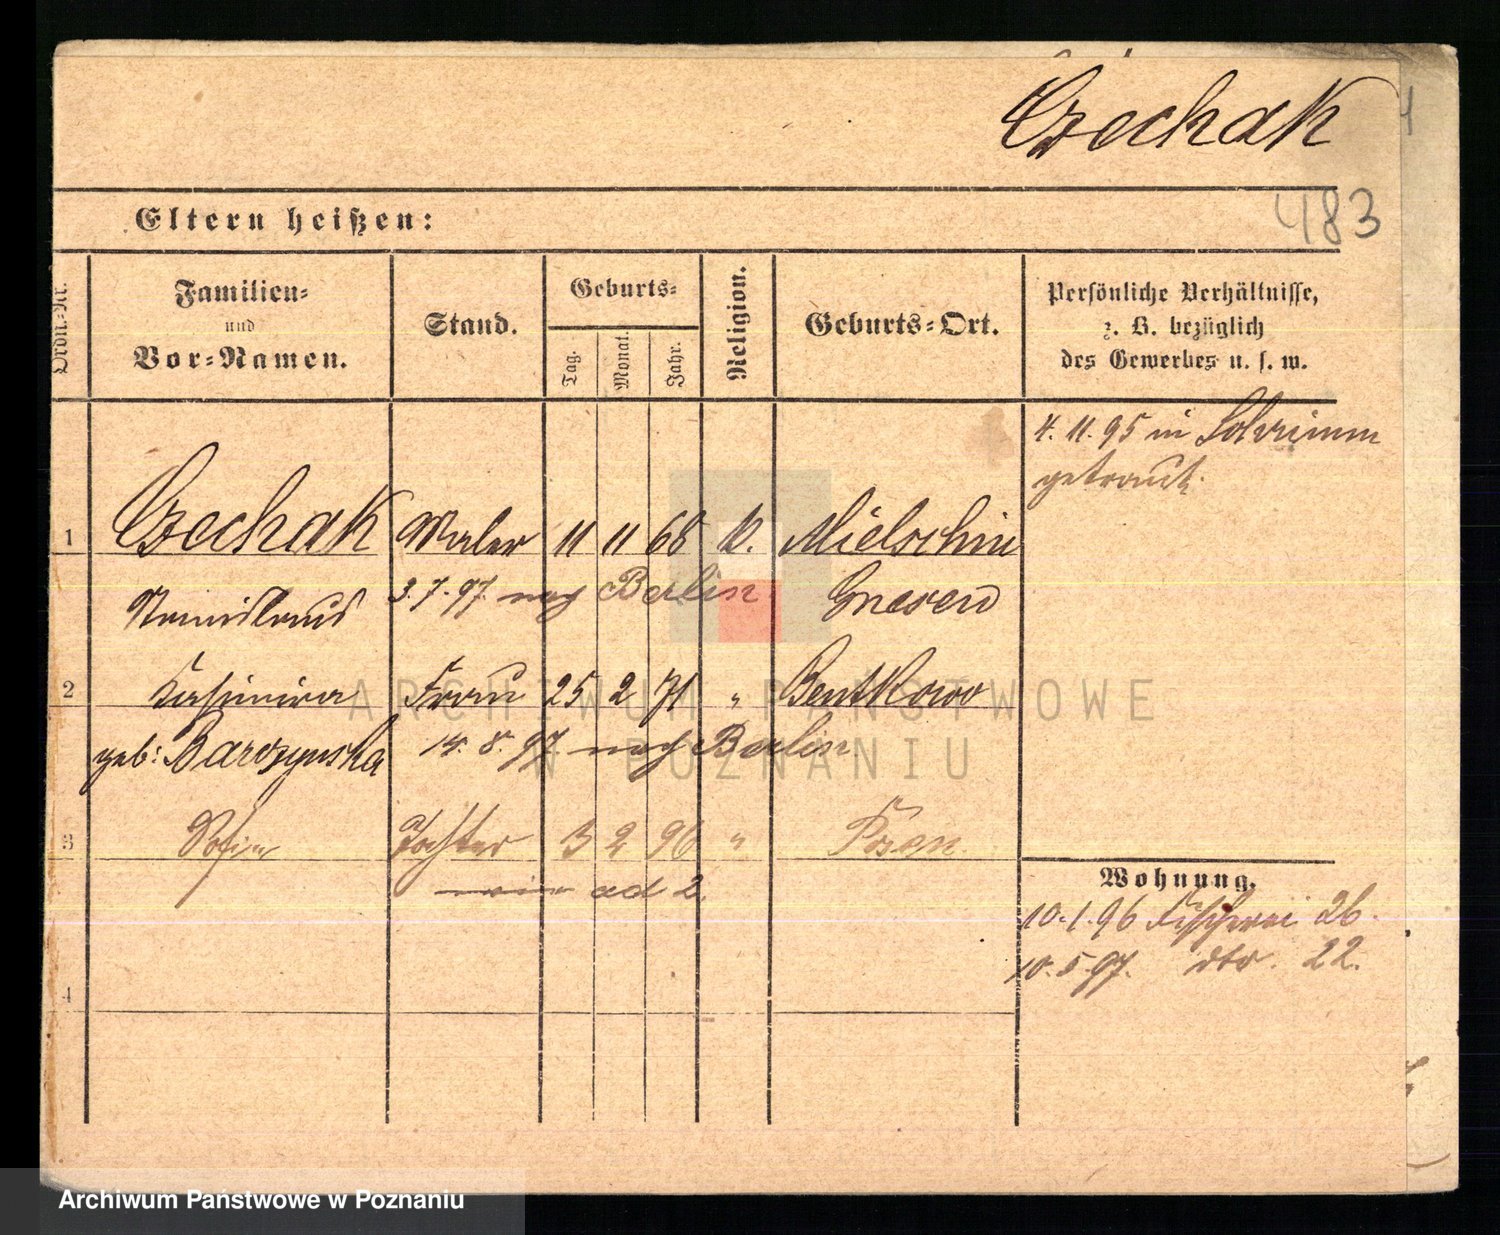 Czechak
483
Eltern heißen:
Ordn.-Nr.
Familien-
und
Vor-Namen.
Stand.
Geburts-
Tag.
Monat.
Jahr.
Religion.
Geburts-Ort.
Persönliche Verhältnisse,
z. B. bezüglich
des Gewerbes u. s. w.
4. 11. 95 in Schrimm
getraut.
1 Czechak Maler 11 11 68 k. Mielschin
Stanislaus 3. 7. 97 nach Berlin Gnesen
2 Kasimira Frau 25 2 71 " Bentkowo
geb: Barczynska 14. 8. 97 nach Berlin
3 Sofia Tochter 3 2 96 " Posen
wie ad 2.
Wohnung.
10. 1. 96 Fischerei 26.
10. 5. 97. dto. 22.
4
ARCHIWUM PAŃSTWOWE
W POZNANIU
Archiwum Państwowe w Poznaniu